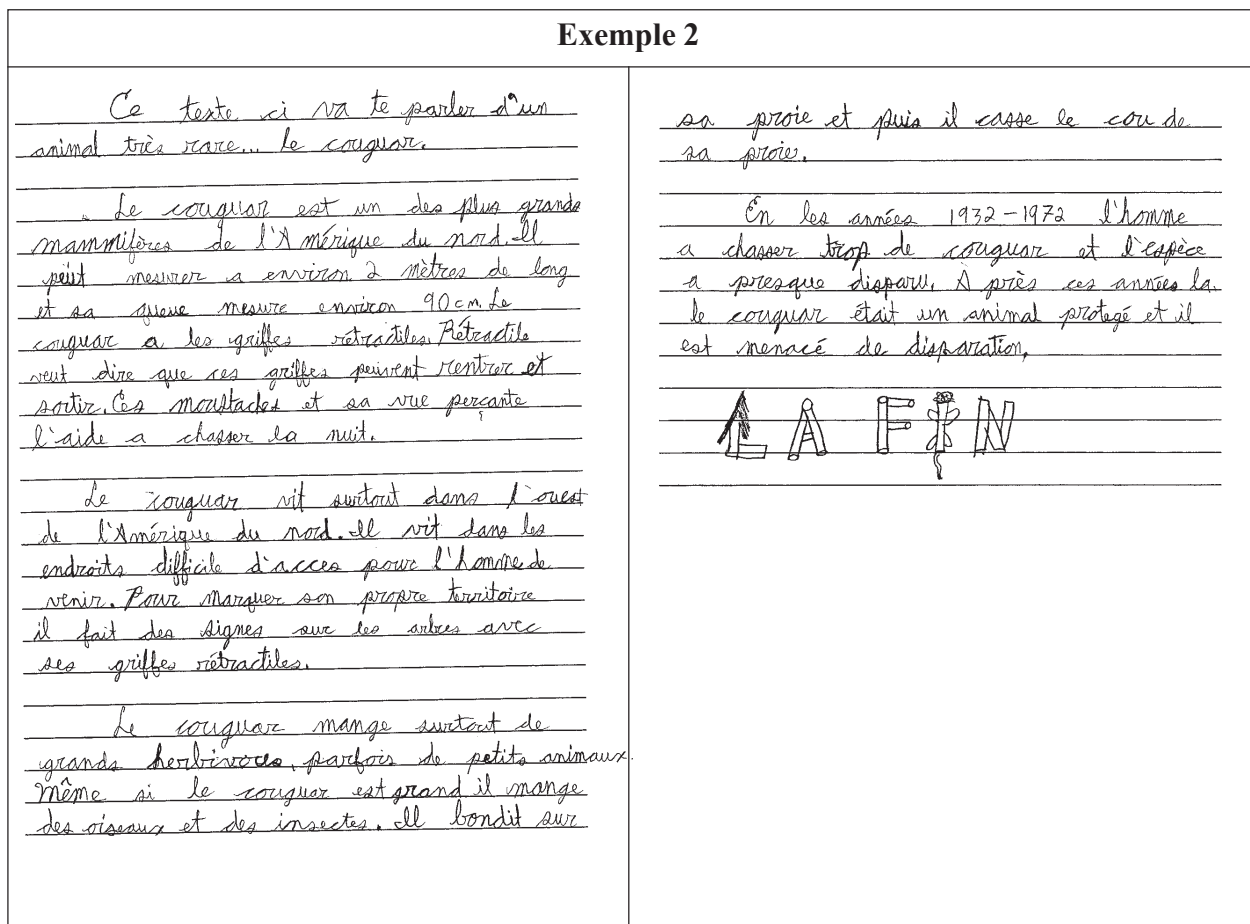 Exemple 2
Ce texte ci va te parler d'un
animal très rare... le couguar.
Le couguar est un des plus grands
mammifères de l'Amérique du nord. Il
peut mesurer a environ 2 mètres de long
et sa queue mesure environ 90 cm. Le
couguar a les griffes rétractiles. Rétractile
veut dire que ces griffes peuvent rentrer et
sortir. Ces moustaches et sa vue perçante
l'aide a chasser la nuit.
Le couguar vit surtout dans l'ouest
de l'Amérique du nord. Il vit dans les
endroits difficile d'acces pour l'homme de
venir. Pour marquer son propre territoire
il fait des signes sur les arbres avec
ses griffes rétractiles.
Le couguar mange surtout de
grands herbivores, parfois de petits animaux.
Même si le couguar est grand il mange
des oiseaux et des insectes. Il bondit sur
sa proie et puis il casse le cou de
sa proie.
En les années 1932-1972 l'homme
a chasser trop de couguar et l'espèce
a presque disparu. Après ces années la.
le couguar était un animal protegé et il
est menacé de disparation.
LA FIN